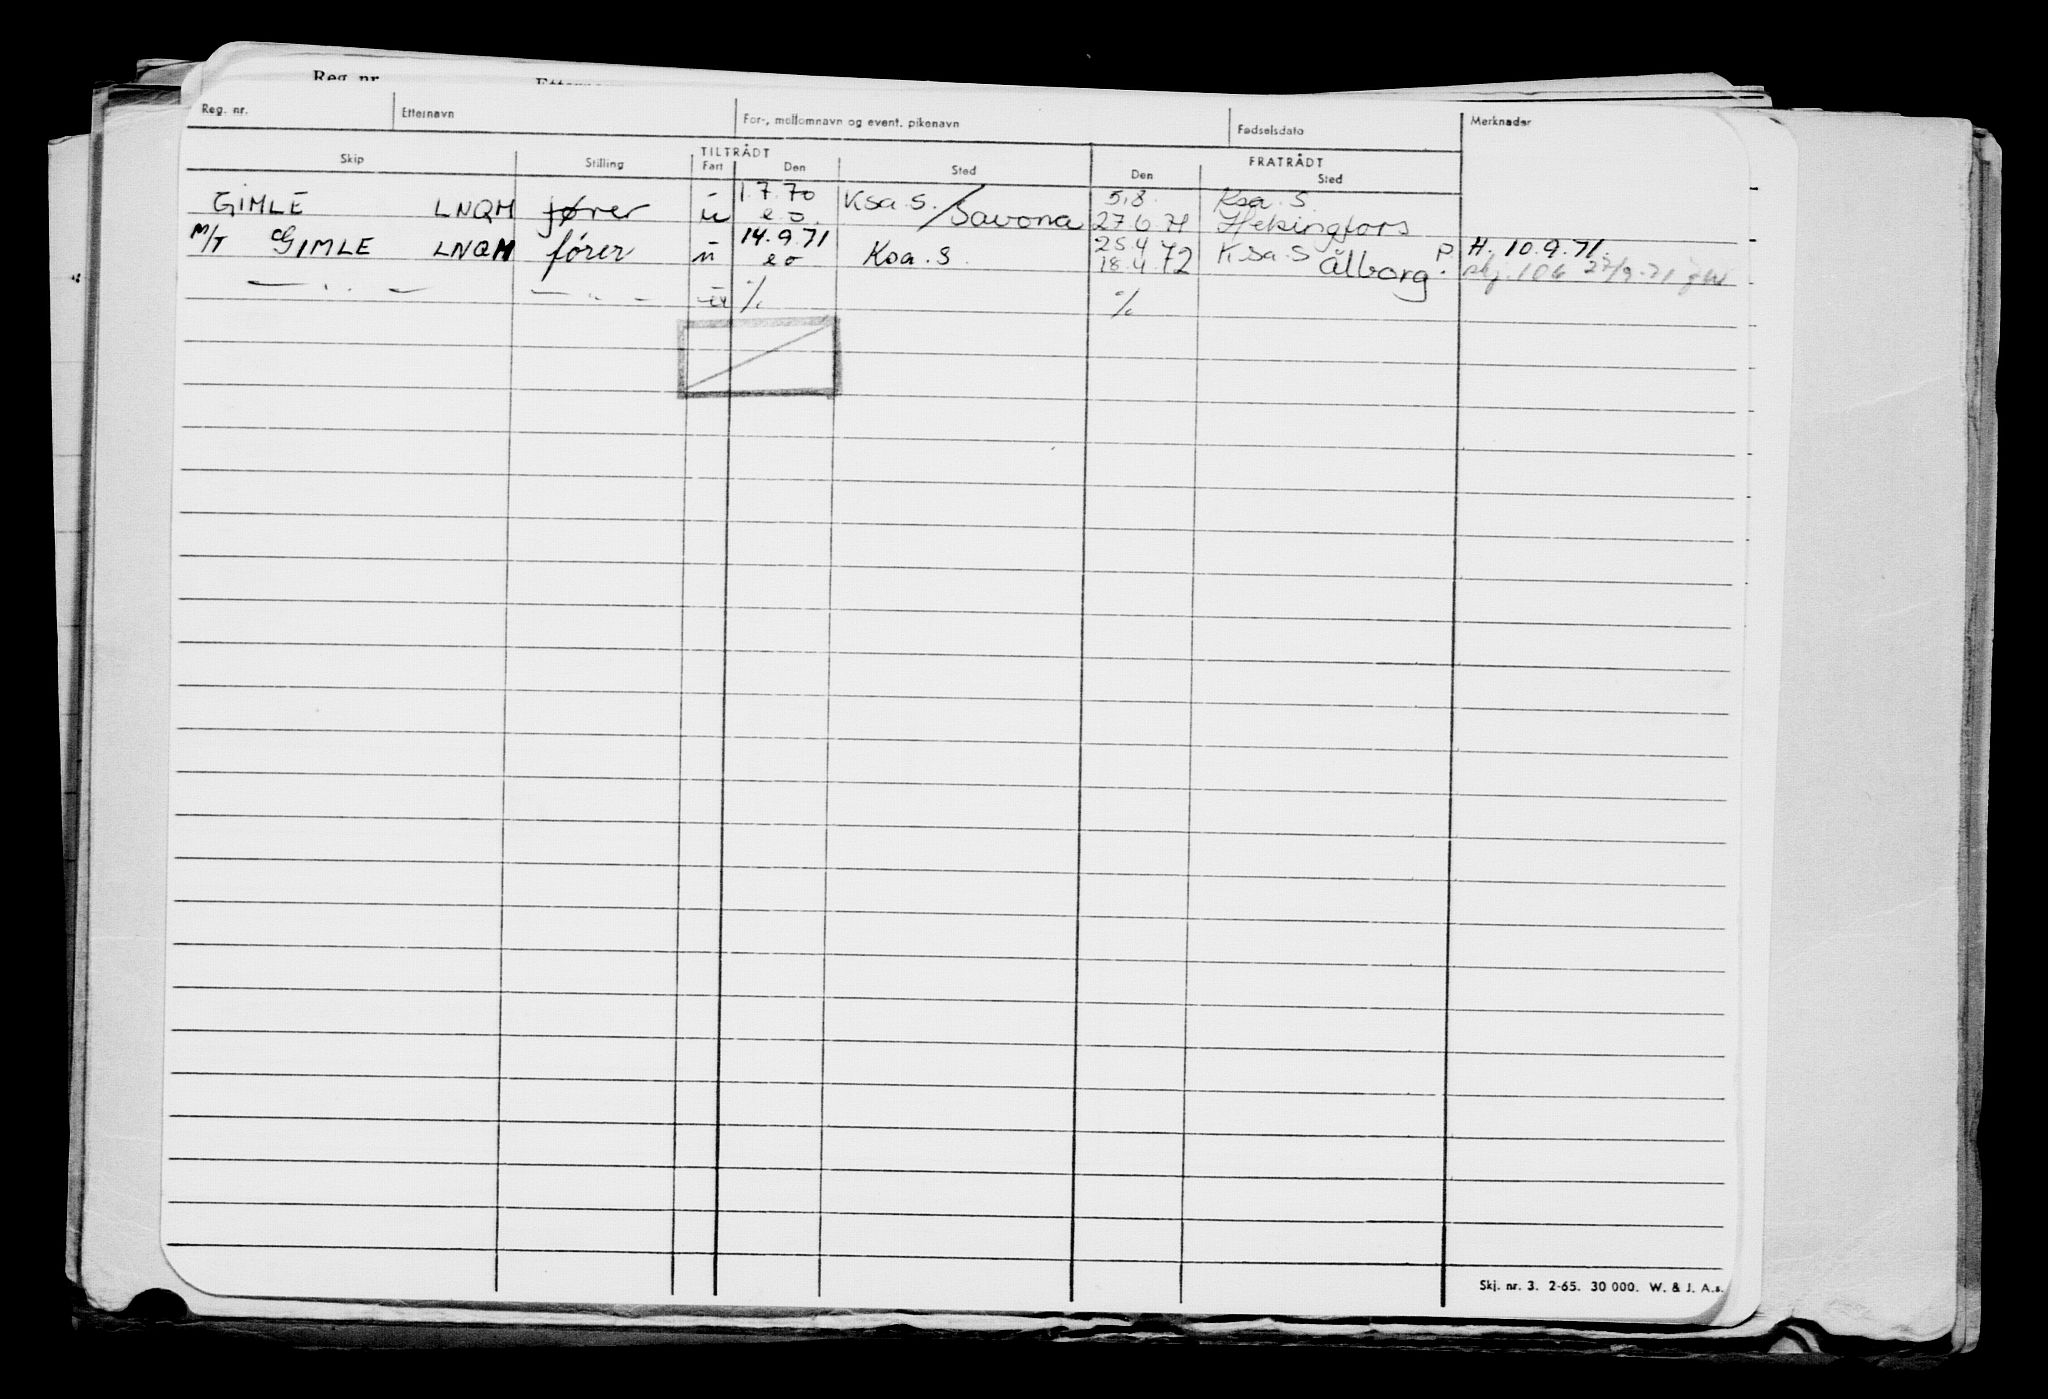 Reg. nr.
Reg. nr. Etternavn For-, mellomnavn og event. pikenavn Fødselsdato Merknader
TILTRÅDT FRATRÅDT
Skip Stilling Fart Den Sted Den Sted
1.7.70 Ksa. S./Savona 5.8. Ksa. S
GIMLE LNQM fører u e o. 27.6.71 Helsingfors
M/T GIMLE LNQM fører u 14.9.71 Ksa. S. 25.4 Ksa. S P. H. 10.9.71.
e o 18.4.72 Ålborg. skj. 106 27/9-71
— „ — — „ — u ٪ ٪
Skj. nr. 3. 2-65. 30 000. W. & J. A.s.